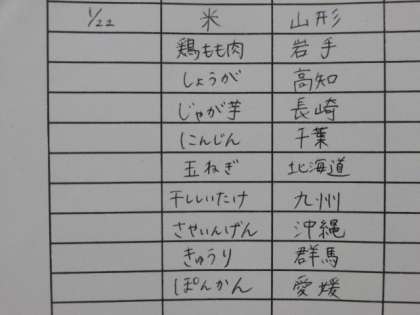 1/22 米 山形
鶏もも肉 岩手
しょうが 高知
じゃが芋 長崎
にんじん 千葉
玉ねぎ 北海道
干ししいたけ 九州
さやいんげん 沖縄
きゅうり 群馬
ぽんかん 愛媛